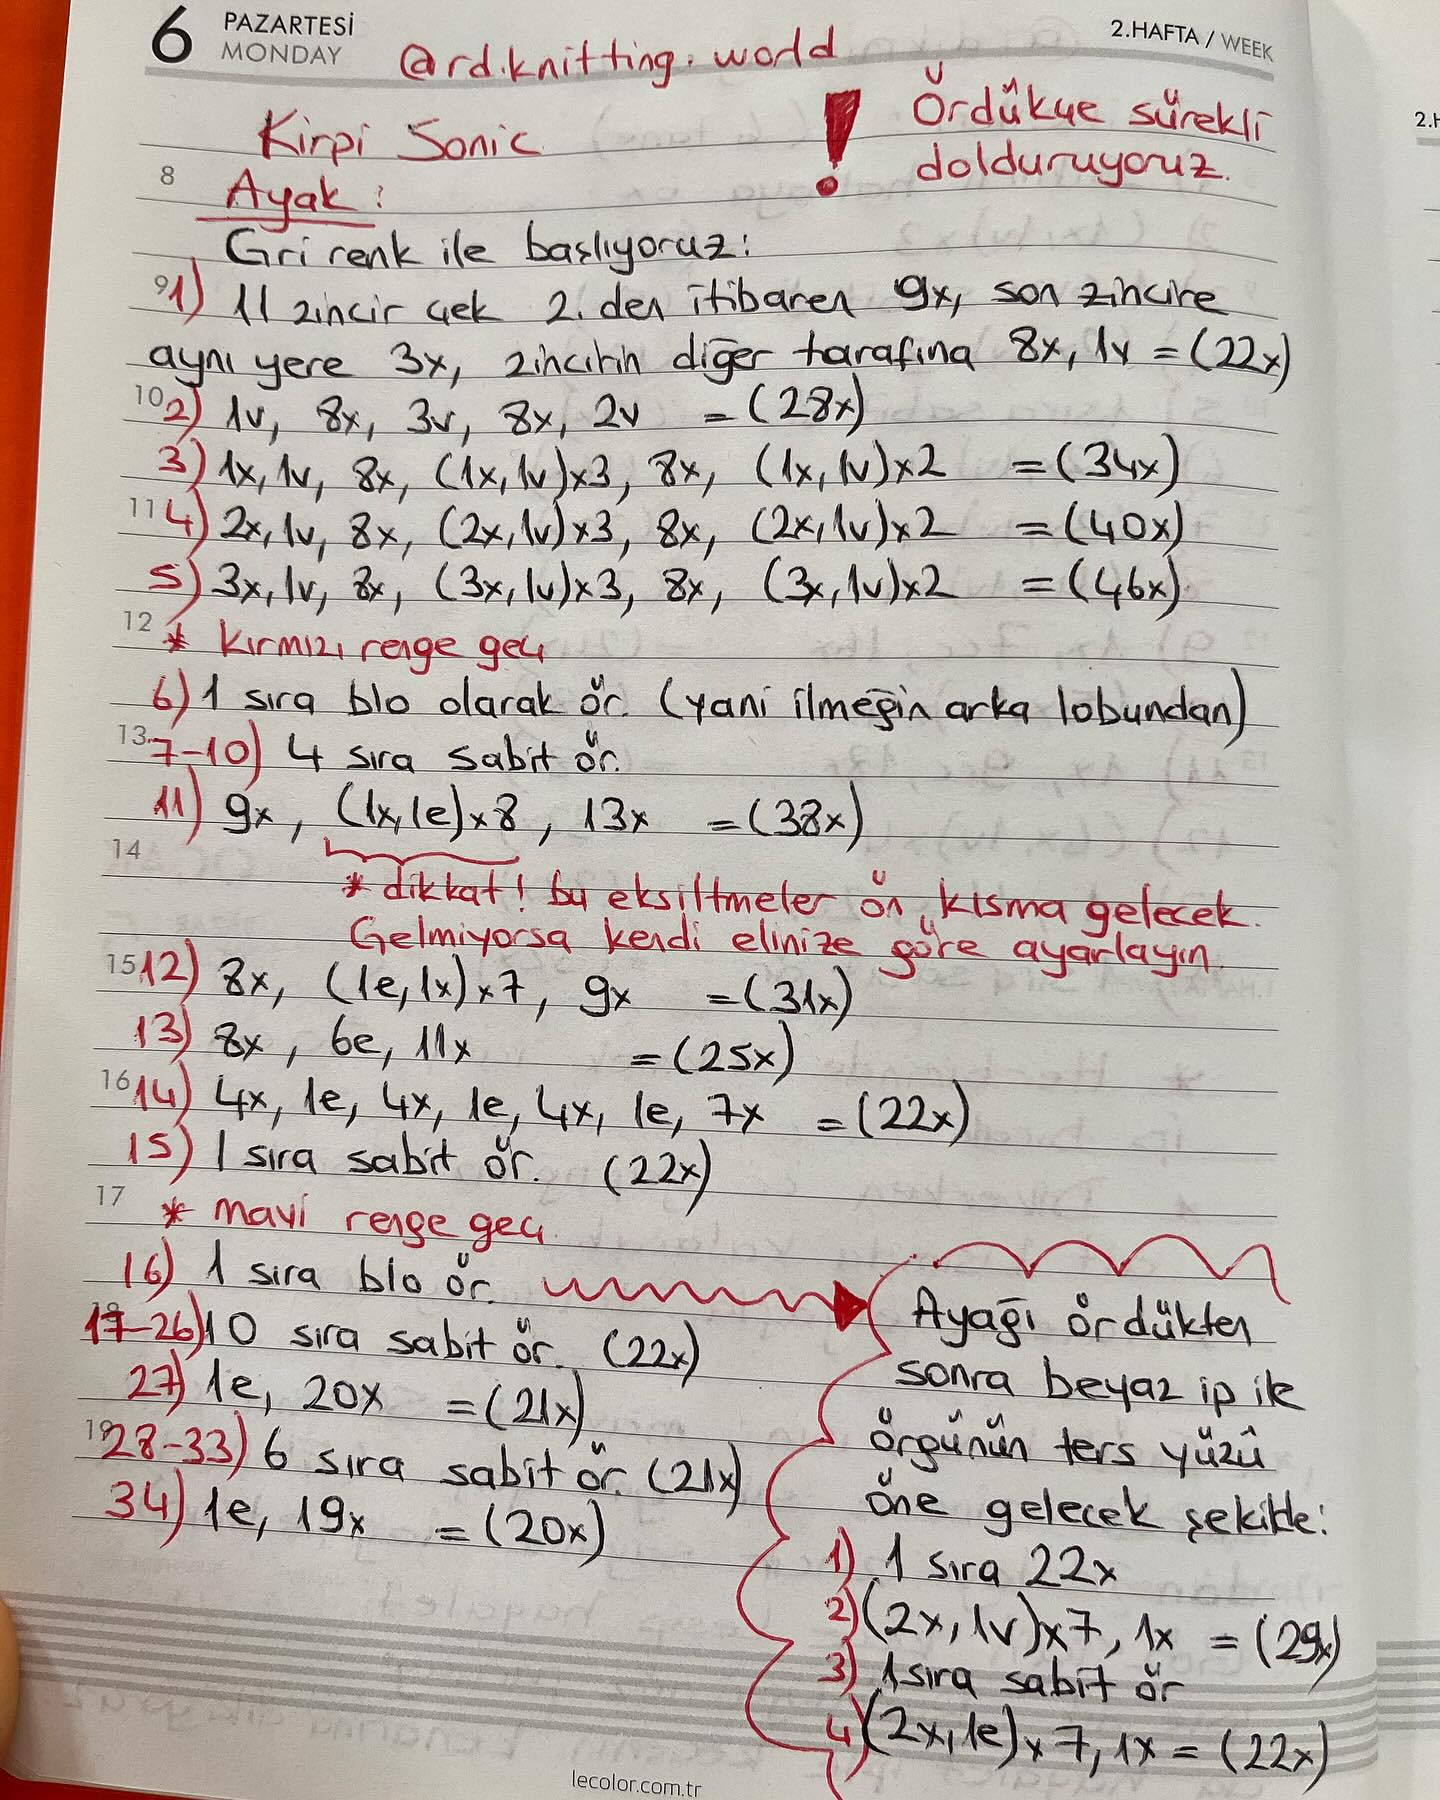 6 PAZARTESİ
MONDAY
2.HAFTA / WEEK
@rd.knitting.world
Kirpi Sonic
! Ördükçe sürekli
dolduruyoruz.
8
Ayak:
Gri renk ile başlıyoruz:
9
1) 11 zincir çek 2. den itibaren 9x, son zincire
aynı yere 3x, zincirin diğer tarafına 8x, 1v = (22x)
10
2) 1v, 8x, 3v, 8x, 2v = (28x)
3) 1x, 1v, 8x, (1x, 1v)x3, 8x, (1x, 1v)x2 = (34x)
11
4) 2x, 1v, 8x, (2x, 1v)x3, 8x, (2x, 1v)x2 = (40x)
5) 3x, 1v, 8x, (3x, 1v)x3, 8x, (3x, 1v)x2 = (46x)
12
* kırmızı renge geç
6) 1 sıra blo olarak ör. (yani ilmeğin arka lobundan)
13
7-10) 4 sıra sabit ör.
11) 9x, (1x, 1e)x8, 13x = (38x)
14
* dikkat! bu eksiltmeler ön kısma gelecek.
Gelmiyorsa kendi elinize göre ayarlayın.
15
12) 8x, (1e, 1x)x7, 9x = (31x)
13) 8x, 6e, 11x = (25x)
16
14) 4x, 1e, 4x, 1e, 4x, 1e, 7x = (22x)
15) 1 sıra sabit ör. (22x)
17
* mavi renge geç
16) 1 sıra blo ör.
17-26) 10 sıra sabit ör. (22x)
27) 1e, 20x = (21x)
19
28-33) 6 sıra sabit ör. (21x)
34) 1e, 19x = (20x)
Ayağı ördükten
sonra beyaz ip ile
örgünün ters yüzü
öne gelecek şekilde:
1) 1 sıra 22x
2) (2x, 1v)x7, 1x = (29x)
3) 1 sıra sabit ör
4) (2x, 1e)x7, 1x = (22x)
lecolor.com.tr
2.H